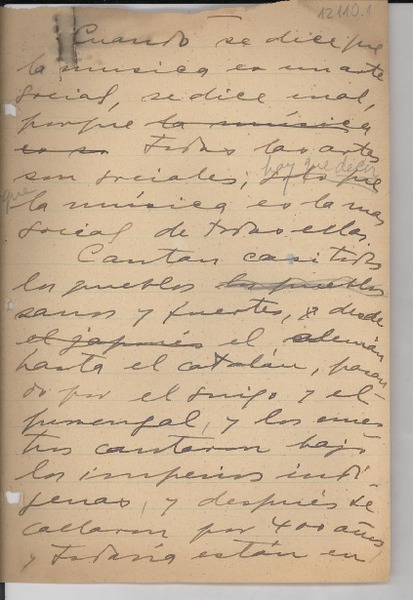 12110.1
Cuando se dice que
la musica es un arte
social, se dice mal,
porque la música
es so todas las artes
son sociales; solo que
hay que decir
que
la música es la mas
social de todas ellas.
Cantan casi todos
los pueblos los pueblos
sanos y fuertes, desde
el japonés el alemán
hasta el catalán, pasan
do por el suizo y el
provenzal, y los nues
tros cantaron bajo
los imperios indí
genas, y después se
callaron por 400 años
y todavía están en